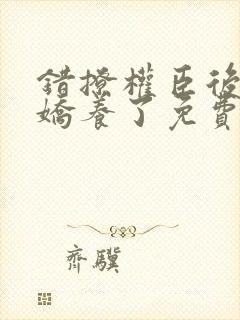 錯撩權臣後
嬌養了免費
齊驥